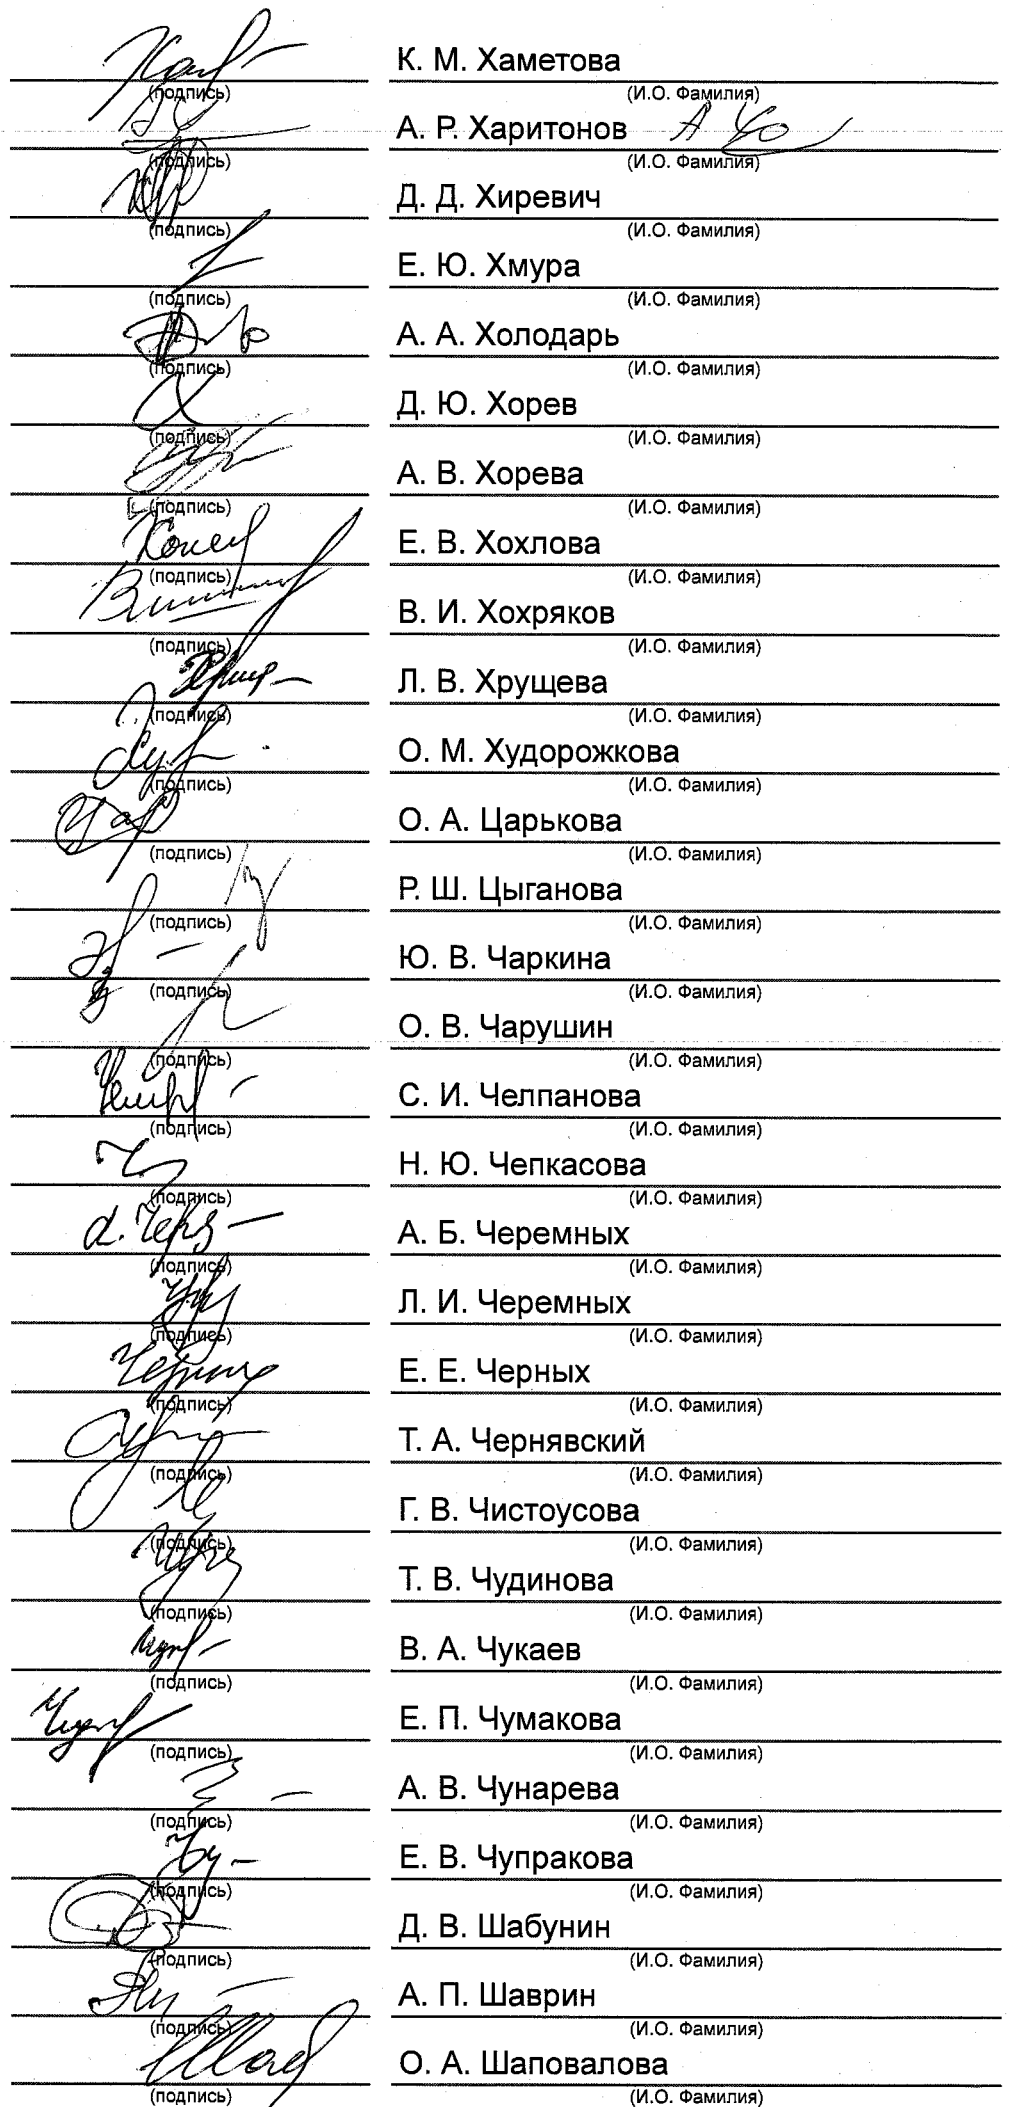 К. М. Хаметова
(подпись) (И.О. Фамилия)
А. Р. Харитонов
(подпись) (И.О. Фамилия)
Д. Д. Хиревич
(подпись) (И.О. Фамилия)
Е. Ю. Хмура
(подпись) (И.О. Фамилия)
А. А. Холодарь
(подпись) (И.О. Фамилия)
Д. Ю. Хорев
(подпись) (И.О. Фамилия)
А. В. Хорева
(подпись) (И.О. Фамилия)
Е. В. Хохлова
(подпись) (И.О. Фамилия)
В. И. Хохряков
(подпись) (И.О. Фамилия)
Л. В. Хрущева
(подпись) (И.О. Фамилия)
О. М. Худорожкова
(подпись) (И.О. Фамилия)
О. А. Царькова
(подпись) (И.О. Фамилия)
Р. Ш. Цыганова
(подпись) (И.О. Фамилия)
Ю. В. Чаркина
(подпись) (И.О. Фамилия)
О. В. Чарушин
(подпись) (И.О. Фамилия)
С. И. Челпанова
(подпись) (И.О. Фамилия)
Н. Ю. Чепкасова
(подпись) (И.О. Фамилия)
А. Б. Черемных
(подпись) (И.О. Фамилия)
Л. И. Черемных
(подпись) (И.О. Фамилия)
Е. Е. Черных
(подпись) (И.О. Фамилия)
Т. А. Чернявский
(подпись) (И.О. Фамилия)
Г. В. Чистоусова
(подпись) (И.О. Фамилия)
Т. В. Чудинова
(подпись) (И.О. Фамилия)
В. А. Чукаев
(подпись) (И.О. Фамилия)
Е. П. Чумакова
(подпись) (И.О. Фамилия)
А. В. Чунарева
(подпись) (И.О. Фамилия)
Е. В. Чупракова
(подпись) (И.О. Фамилия)
Д. В. Шабунин
(подпись) (И.О. Фамилия)
А. П. Шаврин
(подпись) (И.О. Фамилия)
О. А. Шаповалова
(подпись) (И.О. Фамилия)